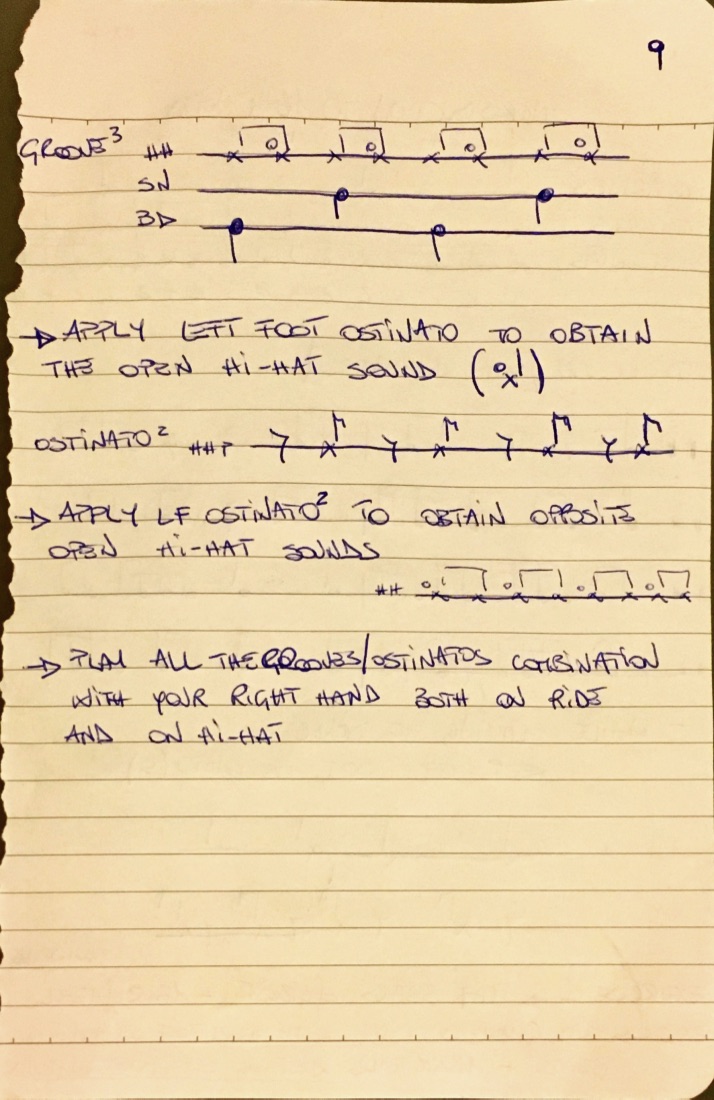 9
GROOVE³ HH
SN
BD
→ APPLY LEFT FOOT OSTINATO TO OBTAIN
THE OPEN Hi-HAT SOUND ( )
OSTINATO² HHP
→ APPLY LF OSTINATO² TO OBTAIN OPPOSITE
OPEN Hi-HAT SOUNDS
HH
→ PLAY ALL THE GROOVES/OSTINATOS COMBINATION
WITH YOUR RIGHT HAND BOTH ON RIDE
AND ON Hi-HAT